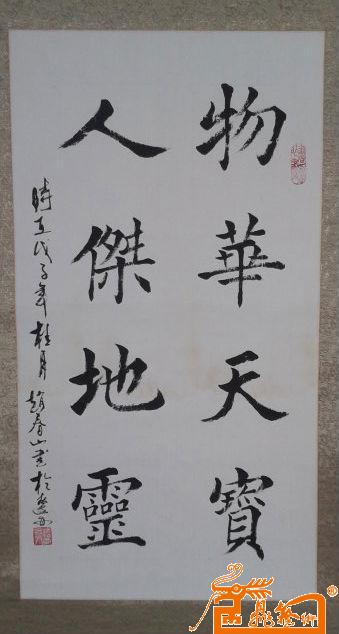 物華天寶
人傑地靈
時在戊子年桂月趙春山書於